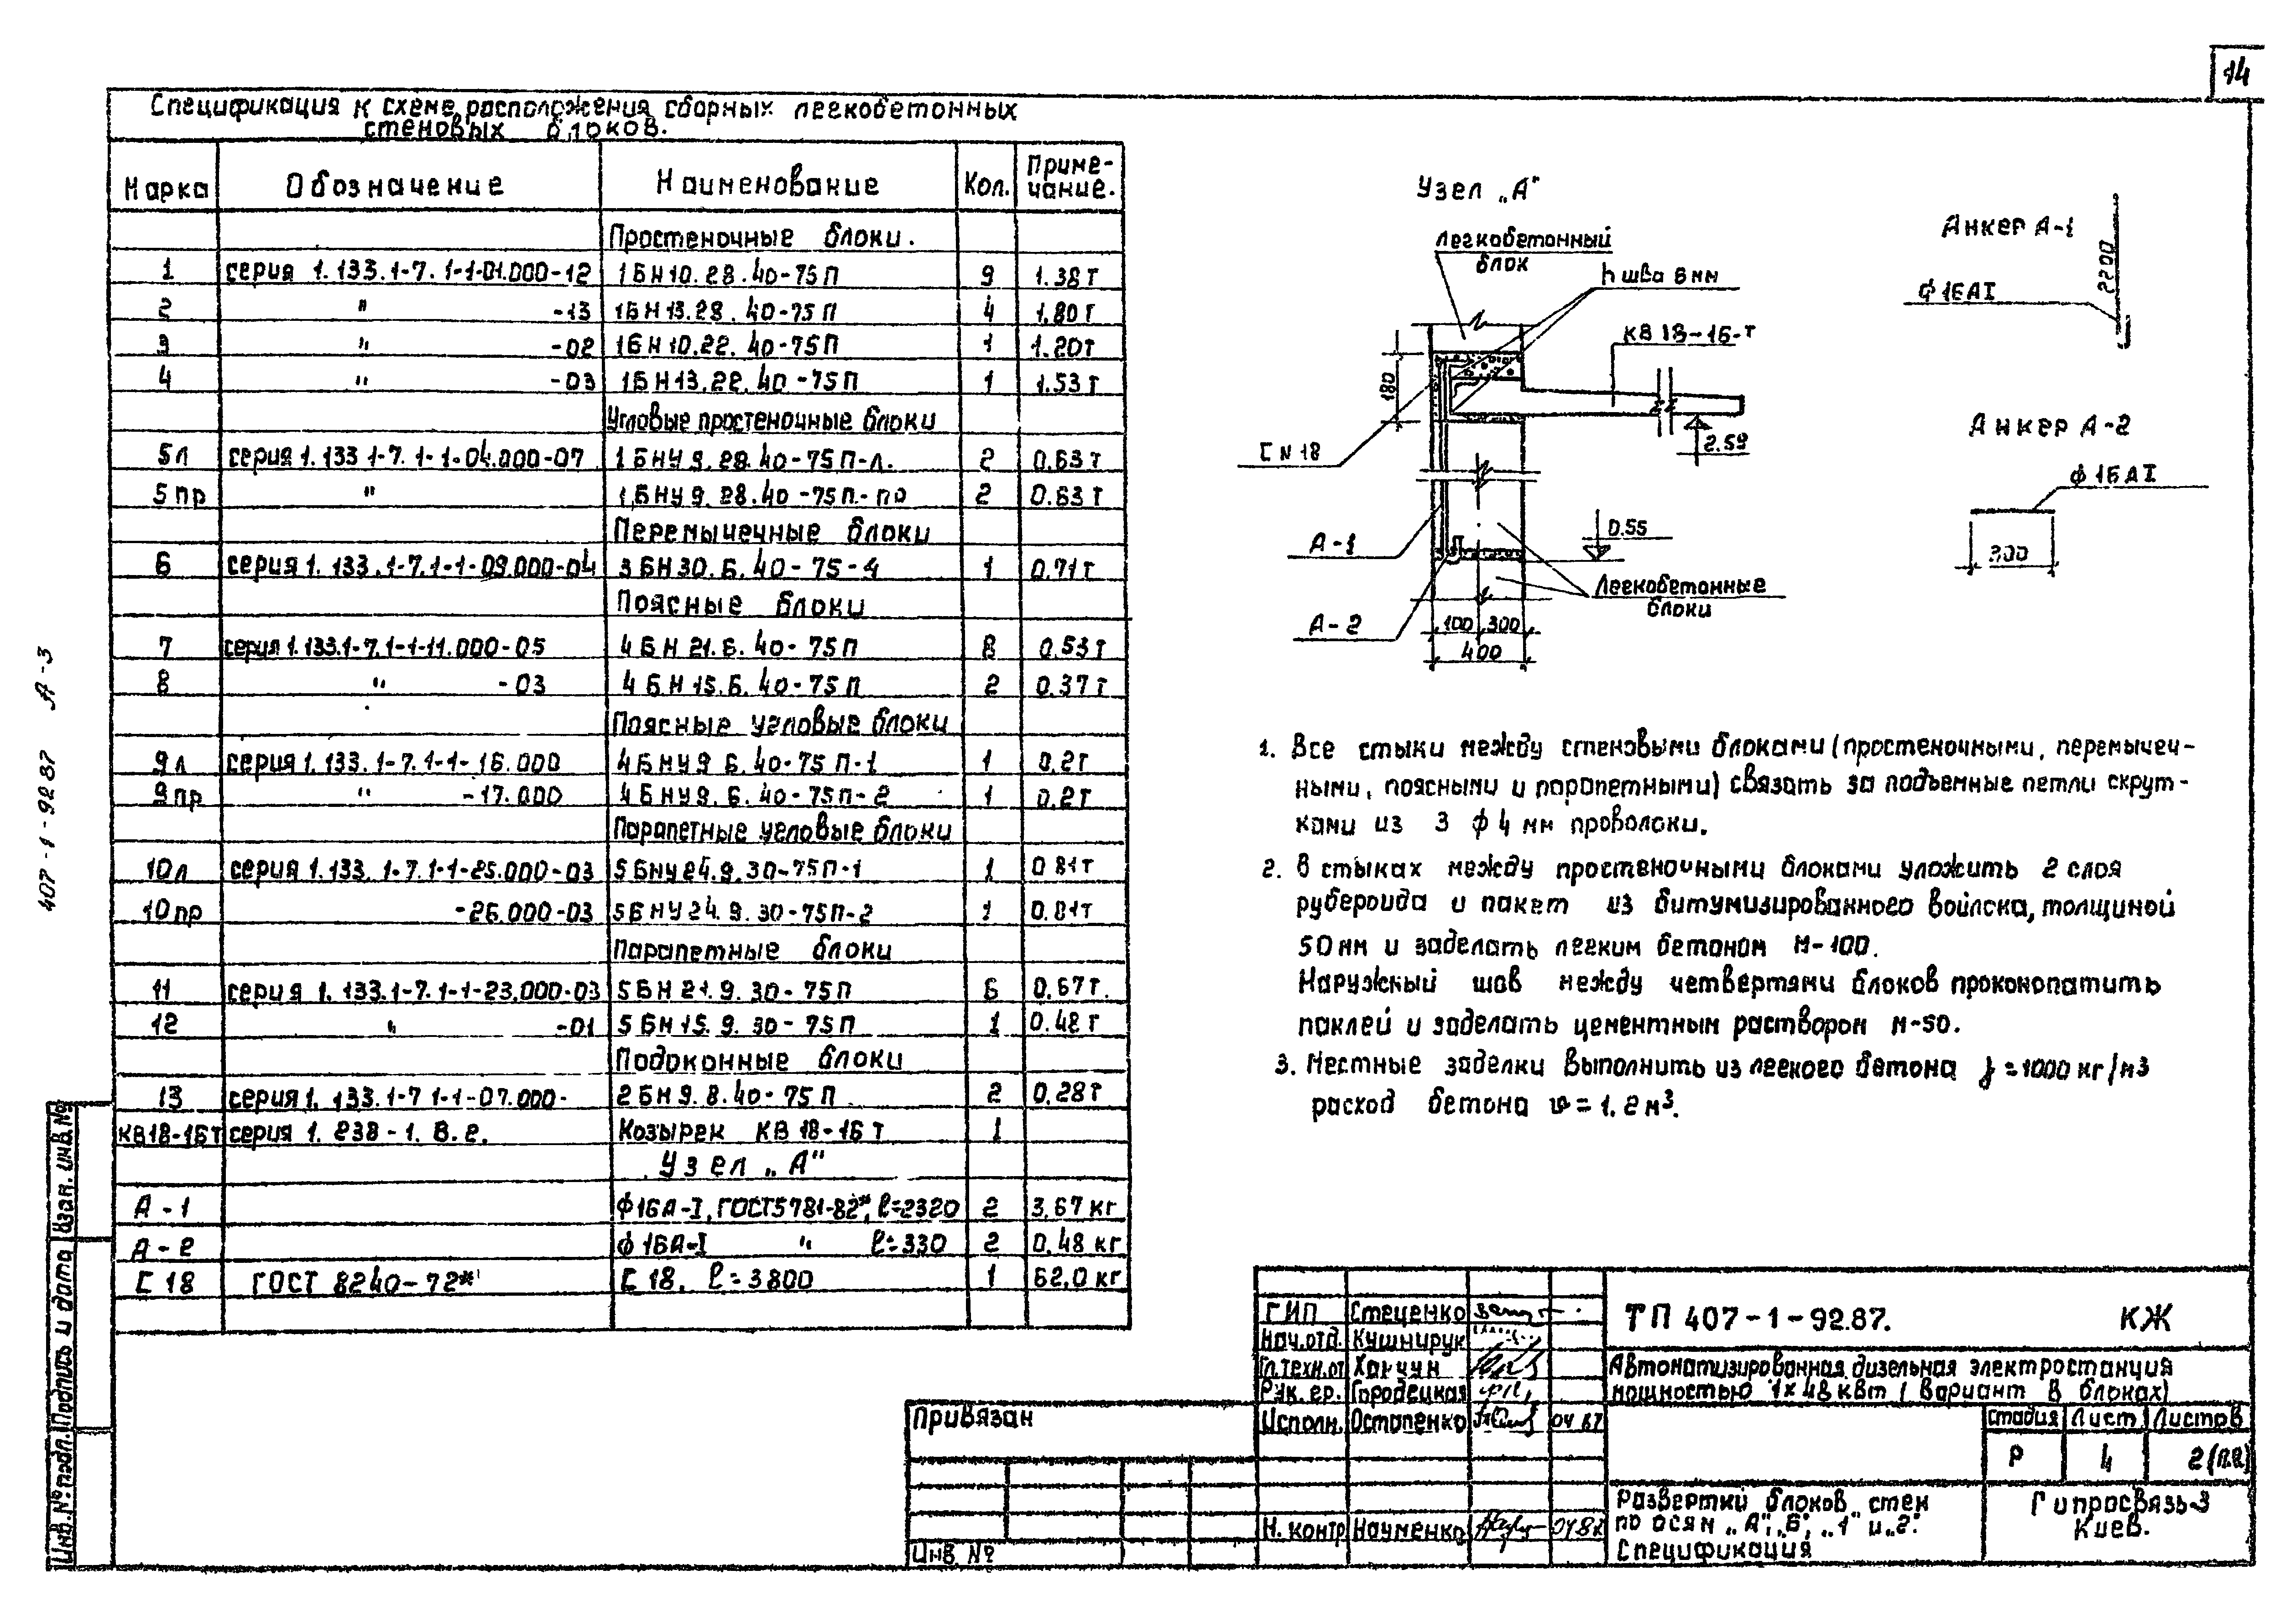 14
Спецификация к схеме расположения сборных легкобетонных
стеновых блоков.
Марка Обозначение Наименование Кол. Приме-
чание.
Простеночные блоки.
1 серия 1.133.1-7.1-1-01.000-12 1БН10.28.40-75П 9 1.38т
2 " -13 1БН13.28.40-75П 4 1.80т
3 " -02 1БН10.22.40-75П 1 1.20т
4 " -03 1БН13.22.40-75П 1 1.53т
Угловые простеночные блоки
5л серия 1.133 1-7.1-1-04.000-07 1БНУ9.28.40-75П-л. 2 0.63т
5пр " 1БНУ9.28.40-75П-пр 2 0.63т
Перемычечные блоки
6 серия 1.133.1-7.1-1-09.000-04 3БН30.6.40-75-4 1 0.71т
Поясные блоки
7 серия 1.133.1-7.1-1-11.000-05 4БН21.6.40-75П 8 0.53т
8 " -03 4БН15.6.40-75П 2 0.37т
Поясные угловые блоки
9л серия 1.133.1-7.1-1-16.000 4БНУ9 6.40-75П-1 1 0.2т
9пр " -17.000 4БНУ9.6.40-75П-2 1 0.2т
Парапетные угловые блоки
10л серия 1.133.1-7.1-1-25.000-03 5БНУ24.9.30-75П-1 1 0 81т
10пр -26.000-03 5БНУ24.9.30-75П-2 1 0.81т
Парапетные блоки
11 серия 1.133.1-7.1-1-23.000-03 5БН21.9.30-75П 6 0.67т.
12 " -01 5БН15.9.30-75П 1 0.48т
Подоконные блоки
13 серия 1.133.1-7 1-1-07.000- 2БН9.8.40-75П 2 0.28т
КВ18-16т серия 1.238-1.В.2. Козырек КВ18-16т 1
Узел „А"
А-1 ф16А-I, ГОСТ5781-82*, ℓ=2320 2 3.67кг
А-2 ф16А-I " ℓ=330 2 0.48кг
[18 ГОСТ 8240-72* [18. ℓ=3800 1 62.0кг
Узел „А"
Легкобетонный
блок
h шва 6мм
КВ 18-16-т
180
[ N 18
2.59
А-1
0.55
Легкобетонные
блоки
А-2
100 300
400
Анкер А-1
2200
ф16АI
Анкер А-2
ф16АI
300
1. Все стыки между стеновыми блоками (простеночными, перемычеч-
ными, поясными и парапетными) связать за подъемные петли скрут-
ками из 3 ф4мм проволоки.
2. В стыках между простеночными блоками уложить 2 слоя
рубероида и пакет из битумизированного войлока, толщиной
50мм и заделать легким бетоном М-100.
Наружный шов между четвертями блоков проконопатить
паклей и заделать цементным раствором М-50.
3. Местные заделки выполнить из легкого бетона γ=1000кг/м3
расход бетона v=1.2м3.
407-1-92 87 А-3
Взам. инв.№
Подпись и дата
Инв.№ подл.
Привязан
Инв №
ГИП Стеценко
Нач.отд. Кушнирук
Гл.техн.от Ханчун
Рук.гр. Городецкая
Исполн. Остапенко 04 87
Н. контр Науменко 04 87
ТП 407-1-92.87. КЖ
Автоматизированная дизельная электростанция
мощностью 1×48кВт (вариант в блоках)
Стадия Лист Листов
Р 4 2(п.в)
Развертки блоков стен
по осям „А", „Б", „1" и „2".
Спецификация
Гипросвязь-3
Киев.